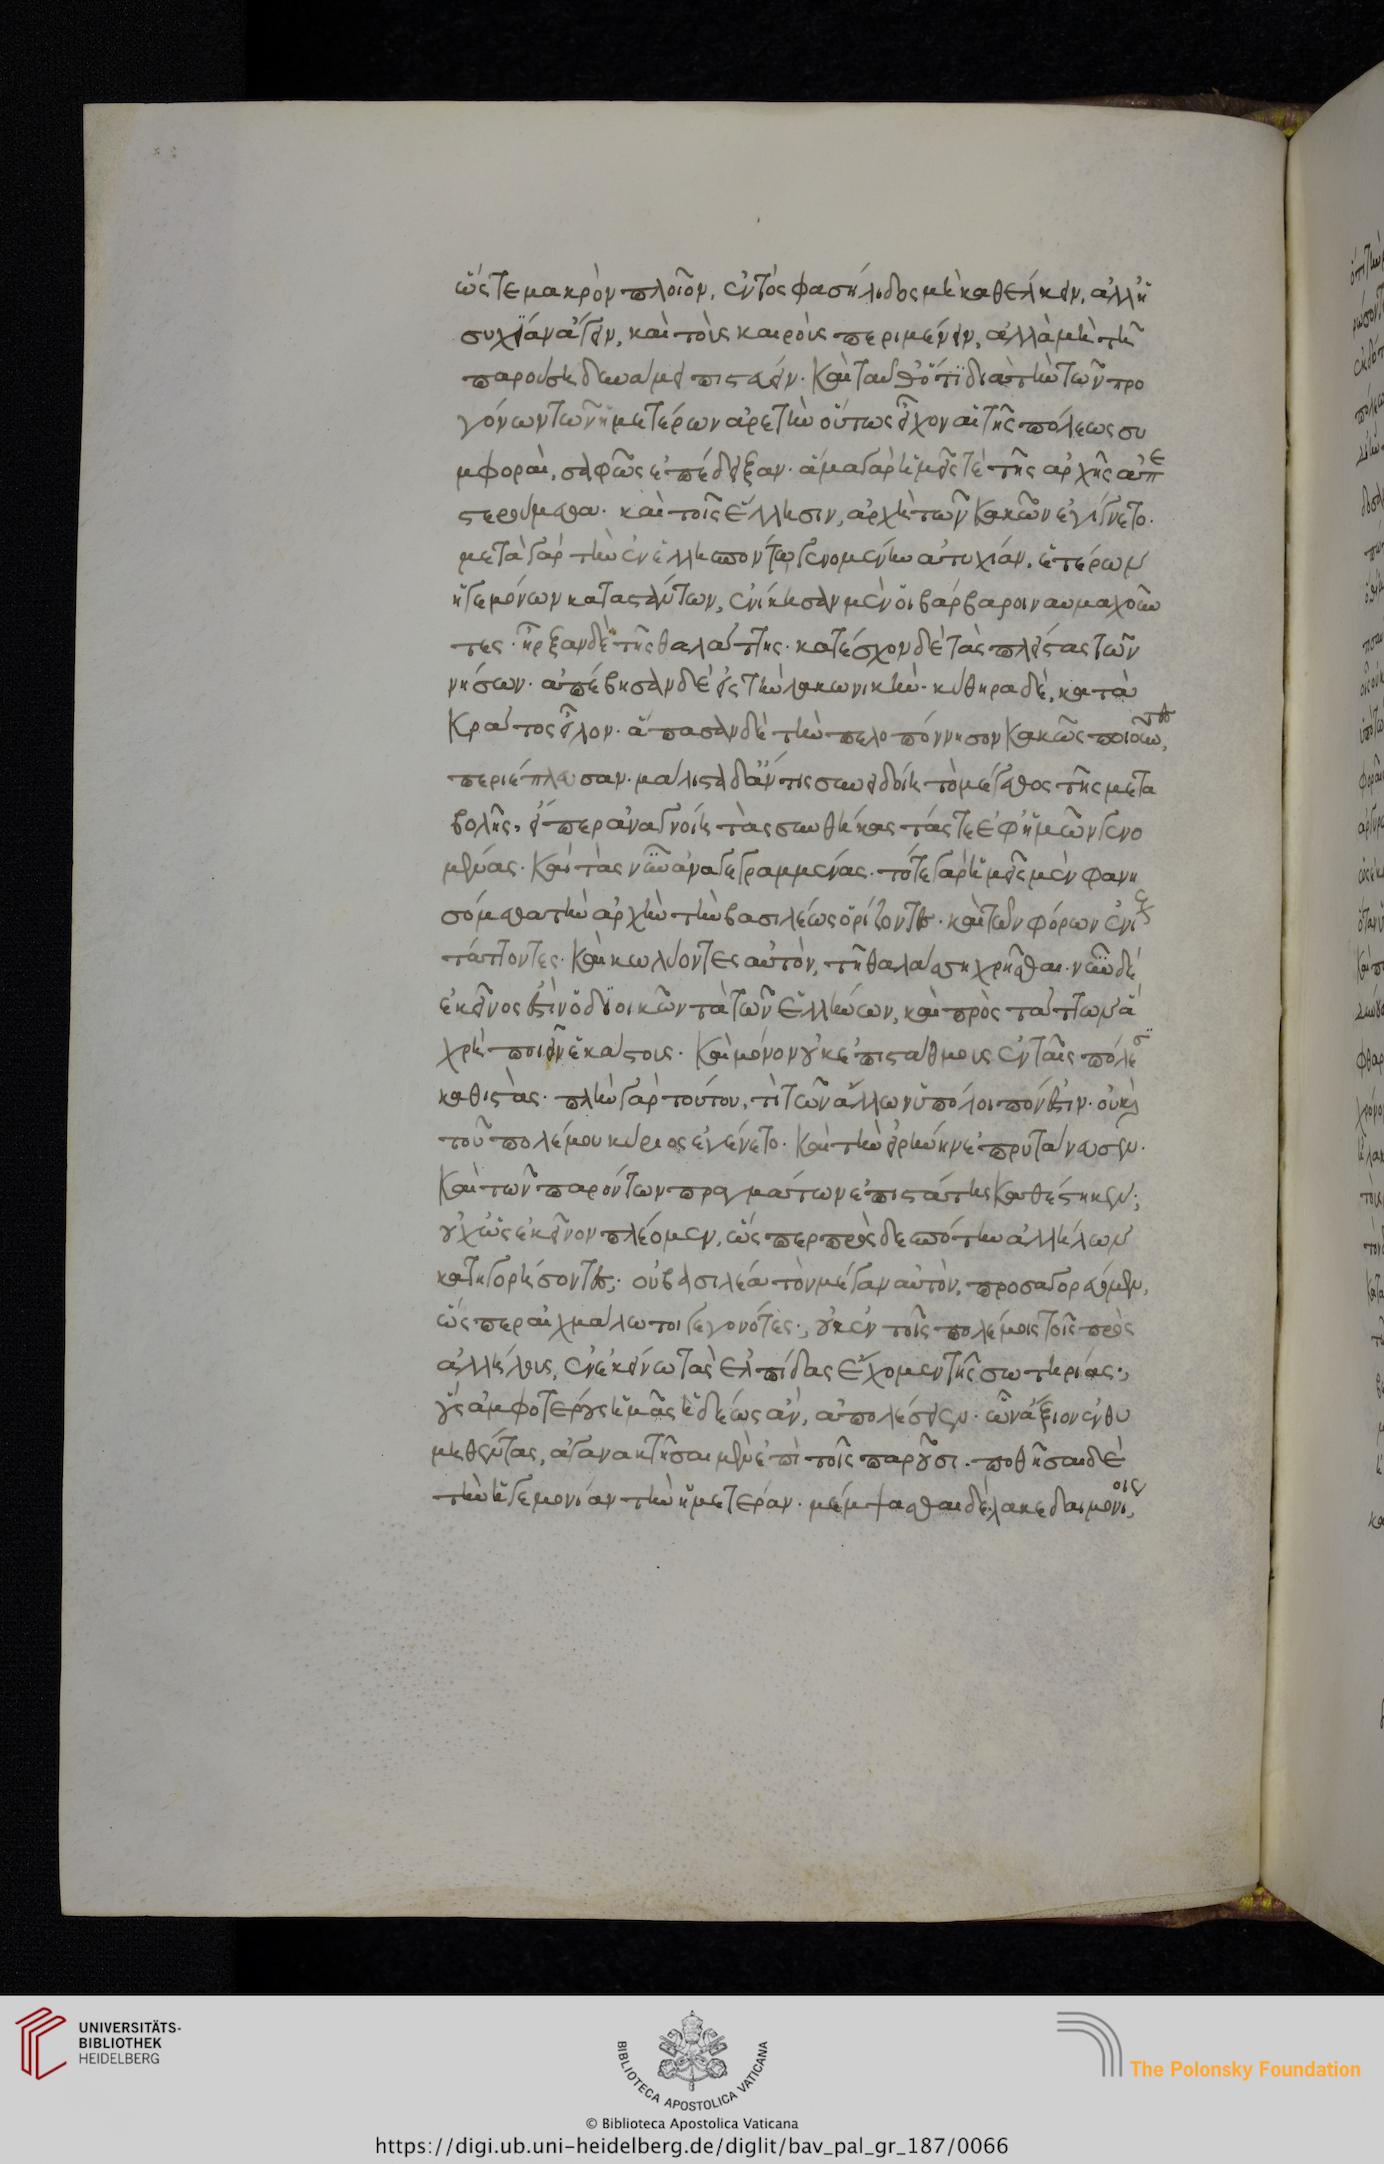 ὥστε μακρὸν πλοῖον, ἐντὸς φασήλιδος μὴ καθέλκειν, ἀλλ' ἡ
συχίαν ἄγειν, καὶ τοὺς καιροὺς περιμένειν, ἀλλὰ μὴ τῆ
παρούση δυνάμει πιστεύειν. καὶ ταῦθ' ὅτι διὰ τὴν τῶν προ
γόνων τῶν ἡμετέρων ἀρετὴν οὕτως εἶχον αἱ τῆς πόλεως συ
μφοραὶ, σαφῶς ἐπέδειξαν. ἅμα γὰρ ἡμεῖς τὲ τῆς ἀρχῆς ἀπε
στερούμεθα. καὶ τοῖς ἕλλησιν, ἀρχὴ τῶν κακῶν ἐγίγνετο.
μετὰ γὰρ τὴν ἐν ἑλλησπόντω γενομένην ἀτυχίαν, ἑτέρων
ἡγεμόνων καταστάντων, ἐνίκησαν μὲν οἱ βάρβαροι ναυμαχοῦν
τες. ἦρξαν δὲ τῆς θαλάττης. κατέσχον δὲ τὰς πλείστας τῶν
νήσων. ἀπέβησαν δὲ εἰς τὴν λακωνικὴν. κύθηρα δὲ, κατὰ
κράτος εἷλον. ἅπασαν δὲ τὴν πελοπόννησον κακῶς ποιοῦντες,
περιέπλευσαν. μάλιστα δ' ἄν τις συνείδοι τὸ μέγεθος τῆς μετα
βολῆς, εἴπερ ἀναγνοίη τὰς συνθήκας τάς τε ἐφ' ἡμῶν γενο
μένας. καὶ τὰς νῦν ἀναγεγραμμένας. τότε γὰρ ἡμεῖς μὲν φανη
σόμεθα τὴν ἀρχὴν τὴν βασιλέως ὁρίζοντες. καὶ τῶν φόρων ἐνίους
τάττοντες. καὶ κωλύοντες αὐτὸν, τῆ θαλάσση χρῆσθαι. νῦν δὲ
ἐκεῖνος ἐστὶν ὁ διοικῶν τὰ τῶν ἑλλήνων, καὶ προστάττων ἃ
χρὴ ποιεῖν ἑκάστοις. καὶ μόνον οὐκ ἐπιστάθμους ἐν ταῖς πόλεσι
καθιστάς. πλὴν γὰρ τούτου, τί τῶν ἄλλων ὑπόλοιπόν ἐστιν. οὐ καὶ
τοῦ πολέμου κύριος ἐγένετο. καὶ τὴν εἰρήνην ἐπρυτάνευσεν.
καὶ τῶν παρόντων πραγμάτων ἐπιστάτης καθέστηκεν;
οὐχ ὡς ἐκεῖνον πλέομεν, ὥσπερ πρὸς δεσπότην ἀλλήλων
κατηγορήσοντες; οὐ βασιλέα τὸν μέγαν αὐτὸν, προσαγορεύομεν,
ὥσπερ αἰχμάλωτοι γεγονότες; οὐκ ἐν τοῖς πολέμοις τοῖς πρὸς
ἀλλήλους, ἐν ἐκείνω τὰς ἐλπίδας ἔχομεν τῆς σωτηρίας;
ὃς ἀμφοτέρους ἡμᾶς ἡδέως ἂν, ἀπολέσειεν. ὧν ἄξιον ἐνθυ
μηθέντας, ἀγανακτῆσαι μὲν ἐπὶ τοῖς παροῦσι. ποθῆσαι δὲ
τὴν ἡγεμονίαν τὴν ἡμετέραν. μέμψασθαι δὲ λακεδαιμονίοις,
UNIVERSITÄTS-
BIBLIOTHEK
HEIDELBERG
BIBLIOTECA APOSTOLICA VATICANA
The Polonsky Foundation
© Biblioteca Apostolica Vaticana
https://digi.ub.uni-heidelberg.de/diglit/bav_pal_gr_187/0066